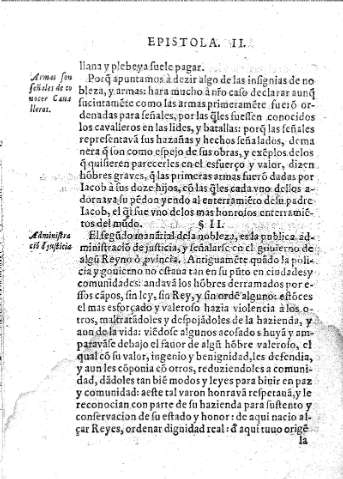 EPISTOLA. II.
llana y plebeya suele pagar.
Armas son
señales de co
nocer Caua
lleros.
Porq̃ apuntamos à dezir algo de las insignias de no
bleza, y armas: hara mucho à nr̃o caso declarar aunq̃
sucintamẽte como las armas primeramẽte fuerõ or-
denadas para señales, por las q̃les fuessen conocidos
los cavalleros en las lides, y batallas: porq̃ las señales
representavã sus hazañas y hechos señalados, dema
nera q̃ son como espejo de sus obras, y exẽplos delos
q̃ quisieren parecerles en el esfuerço y valor, dizen
hõbres graves, q̃ las primeras armas fuerõ dadas por
Iacob à sus doze hijos, cõ las q̃les cada vno dellos a-
dornava su pẽdon yendo al enterramiẽto de su padre
Iacob, el q̃l fue vno delos mas honrosos enterramiẽ-
tos del mũdo. § II.
Administra
ciõ d justicia
El segũdo manãtial dela nobleza, es la publica ad-
ministraciõ de justicia, y señalarse en el gouierno de
algũ Reyno ò ꝓvincia. Antiguamẽte quãdo la poli-
cia y gouierno no estaua tan en su pũto en ciudades y
comunidades: andavã los hõbres derramados por e-
ssos cãpos, sin ley, sin Rey, y sin ordẽ alguno: estõces
el mas esforçado y valeroso hazia violencia à los o-
tros, maltratãdoles y despojãdoles de la hazienda, y
aun de la vida: viẽdose algunos acosados huyã y am-
paravãse debajo el fauor de algũ hõbre valeroso, el
qual cõ su valor, ingenio y benignidad, les defendia,
y aun les cõponia cõ otros, reduziendoles a comuni-
dad, dãdoles tan biẽ modos y leyes para biuir en paz
y comunidad: aeste tal varon honravã respetavã, y le
reconocian con parte de su hazienda para sustento y
conservacion de su estado y honor: de aqui nacio al-
çar Reyes, ordenar dignidad real: d̃ aqui tuuo origẽ
la